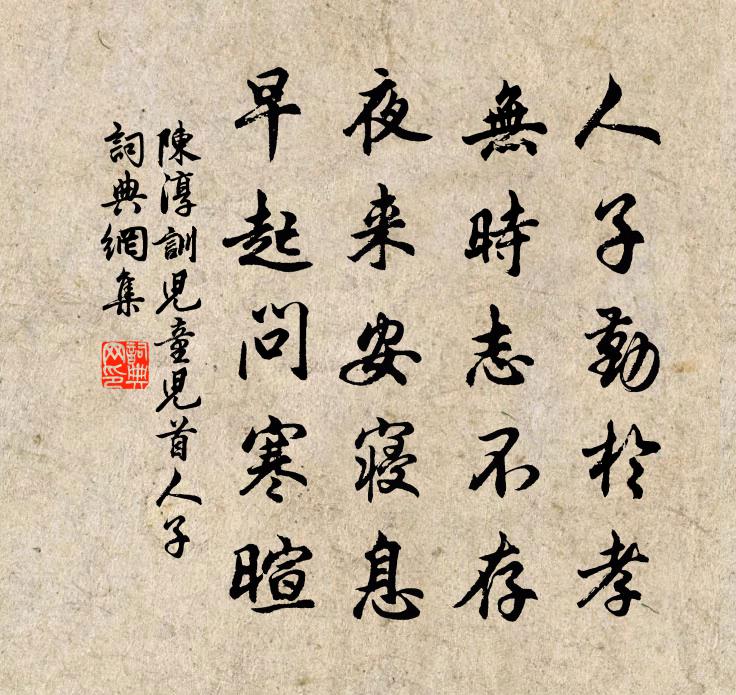 人子勤於孝
無時志不存
夜来安寝息
早起問寒暄
陳淳訓児童児首人子
詞典網集
詞典网印